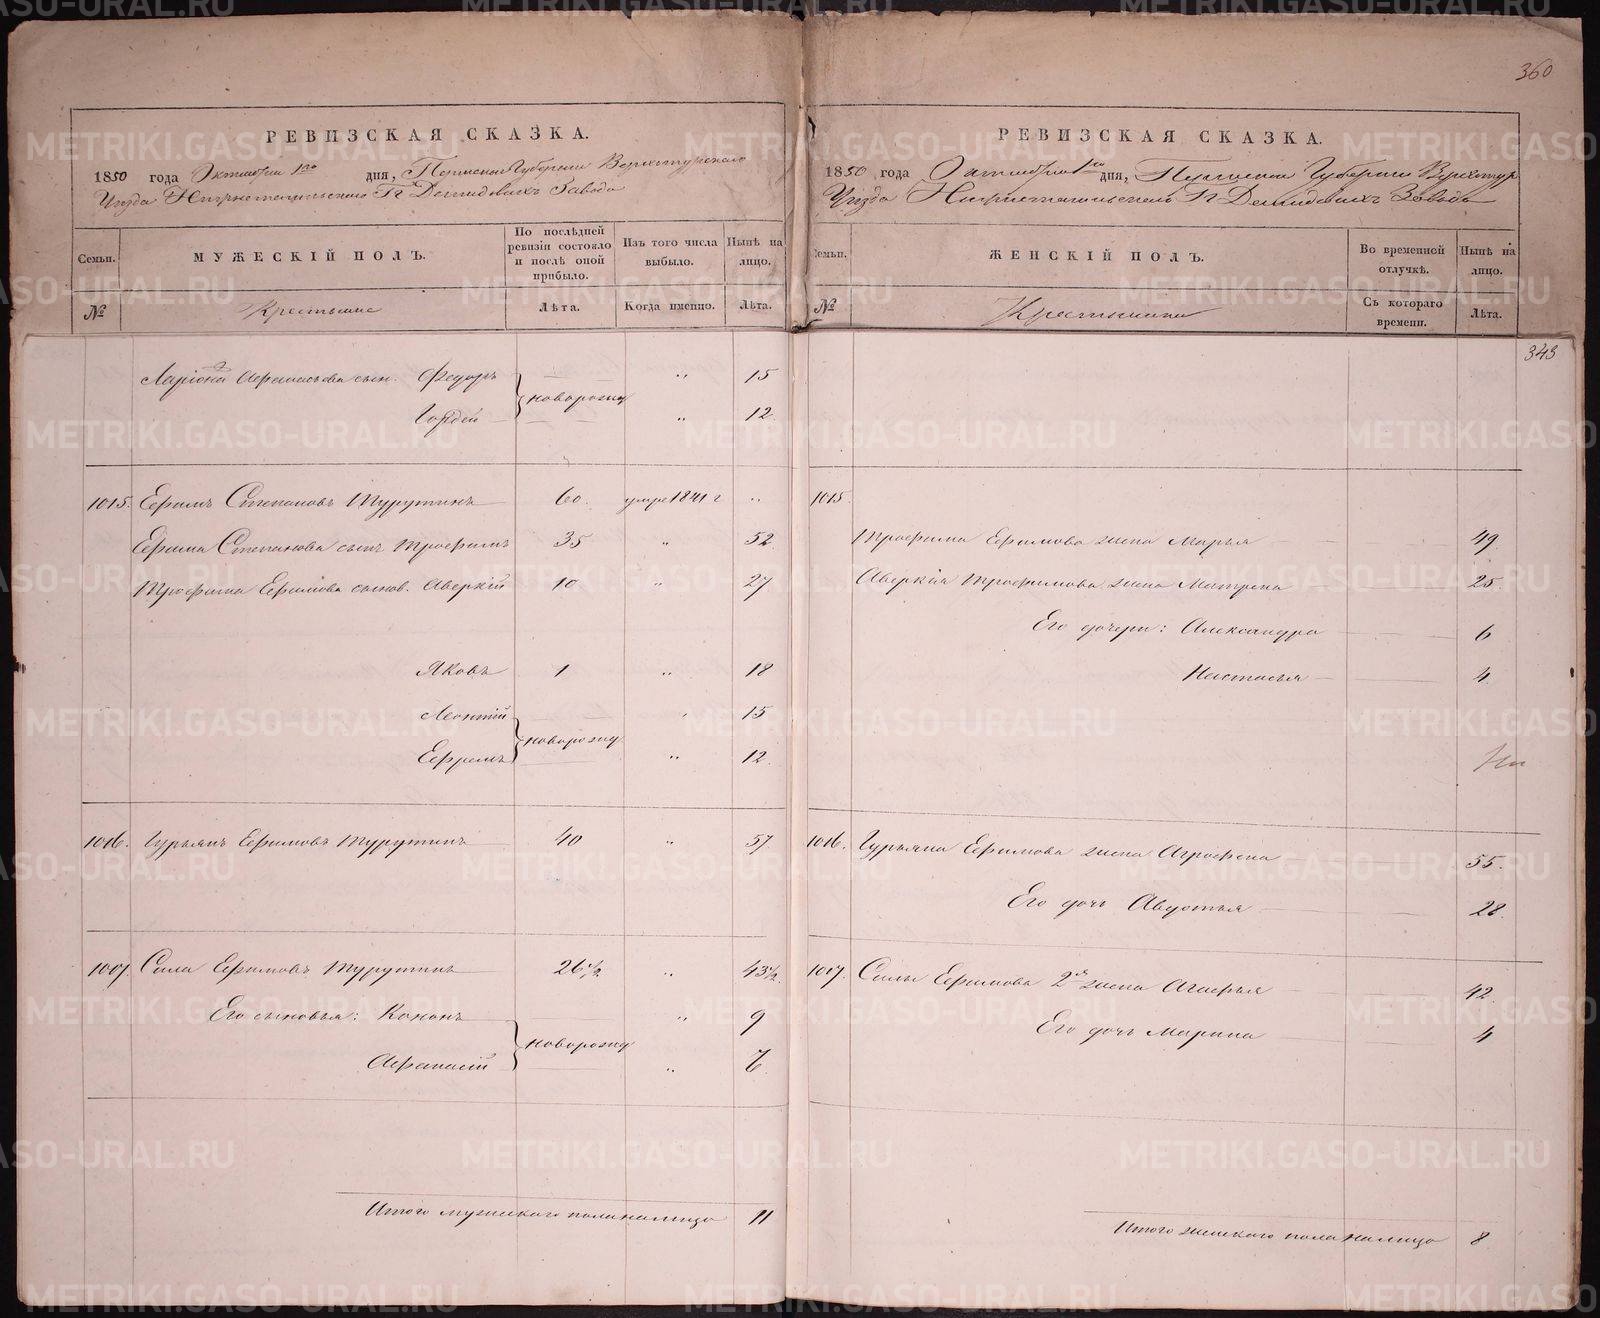 360
РЕВИЗСКАЯ СКАЗКА.
1850 года Октября 1го дня, Пермской Губернии Верхотурского
Уезда Нижнетагильского Гг Демидовыхъ Завода
Семьи. МУЖЕСКІЙ ПОЛЪ. По послѣдней ревизіи состояло и послѣ оной прибыло. Изъ того числа выбыло. Нынѣ на лицо.
№ Крестьяне Лѣта. Когда именно. Лѣта.
Афанасьева сын. Федоръ 15
новорожд
Гордей 12
1015. Ефимъ Степановъ Турутинъ 60. умре 1841 г
Ефима Степанова сынъ Трофимъ 35 52
Трофима Ефимова сынов. Аверкій 10 27
Яковъ 1 18
Леонтій 15
новорожд
Ефремъ 12
1016. Гурьянъ Ефимовъ Турутинъ 40 57
1017. Сила Ефимовъ Турутинъ 26 1/2 43 1/2
Его сыновья: Кононъ 9
новорожд
Афанасій 7
Итого мужеского пола налицо 11
РЕВИЗСКАЯ СКАЗКА.
1850 года Октября 1го дня, Пермской Губернии Верхотур
Уезда Нижнетагильского Гг Демидовыхъ Завода
Семьи. ЖЕНСКІЙ ПОЛЪ. Во временной отлучкѣ. Нынѣ на лицо.
№ Крестьянки Съ котораго времени. Лѣта.
343
1015
Трофима Ефимова жена Марья 49
Аверкія Трофимова жена Матрена 25
Его дочери: Александра 6
Настасья 4
1016. Гурьяна Ефимова жена Аграфена 55.
Его дочь Авдотья 28.
1017. Силы Ефимова 2я жена Агафья 42.
Его дочь Марина 4
Итого женского пола налицо 8
METRIKI.GASO-URAL.RU